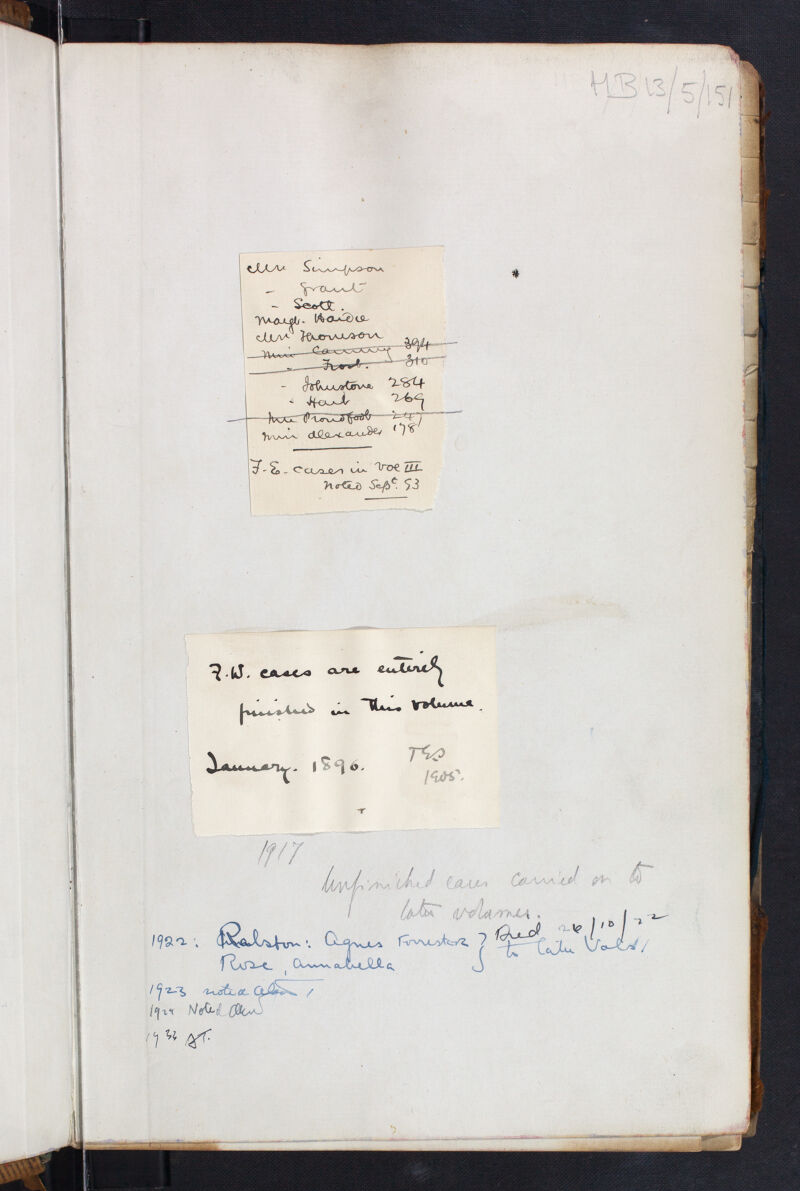 HB 13/5/151
Mrs Simpson
- Grant
- Scott.
Margt. Haidie
Mrs Thomson
Miss Canning 394
" Frost. 310
- Johnstone 284
- Hart 269
Mrs Proudfoot 241
Miss Alexander 178
F.E. cases in Vol III
noted Sept. 93
F.W. cases are entirely
finished in this volume.
January. 1896.
1905.
1917
Unfinished cases carried on to
later volumes.
1922: Ralston: Agnes Forrester } Died 26/10/22
Rose, Annabella } to later Vols.
1923 noted
1924 Noted
1933